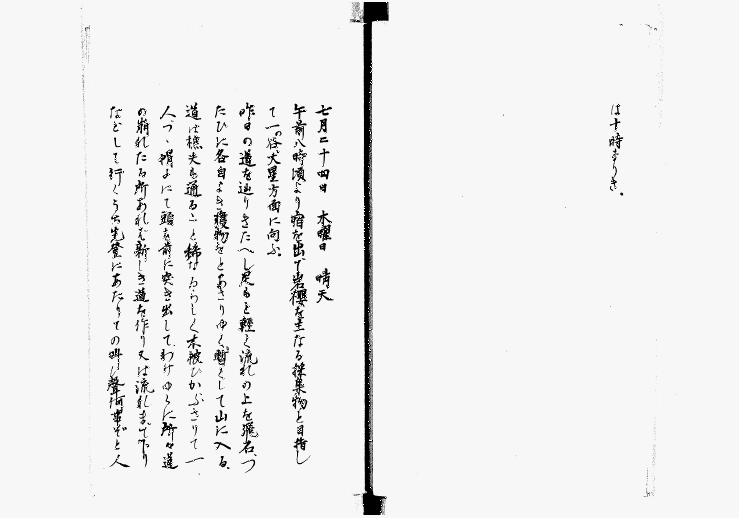 は十時なりき。
七月二十四日　木曜日　晴天
午前八時頃より宿を出で岩櫻を主なる採集物と目指し
て一の谷犬星方面に向ふ。
昨日の道を辿りきたへし足もと軽く流れの上を飛石づ
たひに各自よき獲物をとあさりゆく。暫くして山に入る。
道は樵夫も通ること稀なるらしく木被ひかぶさりて一
人づゝ猫よにて頭を前に突き出してわけゆくに所々道
の崩れたる所あれば新しき道を作り又は流れまで下り
などして行くうち先登にあたりての叫び聲何事ぞと人